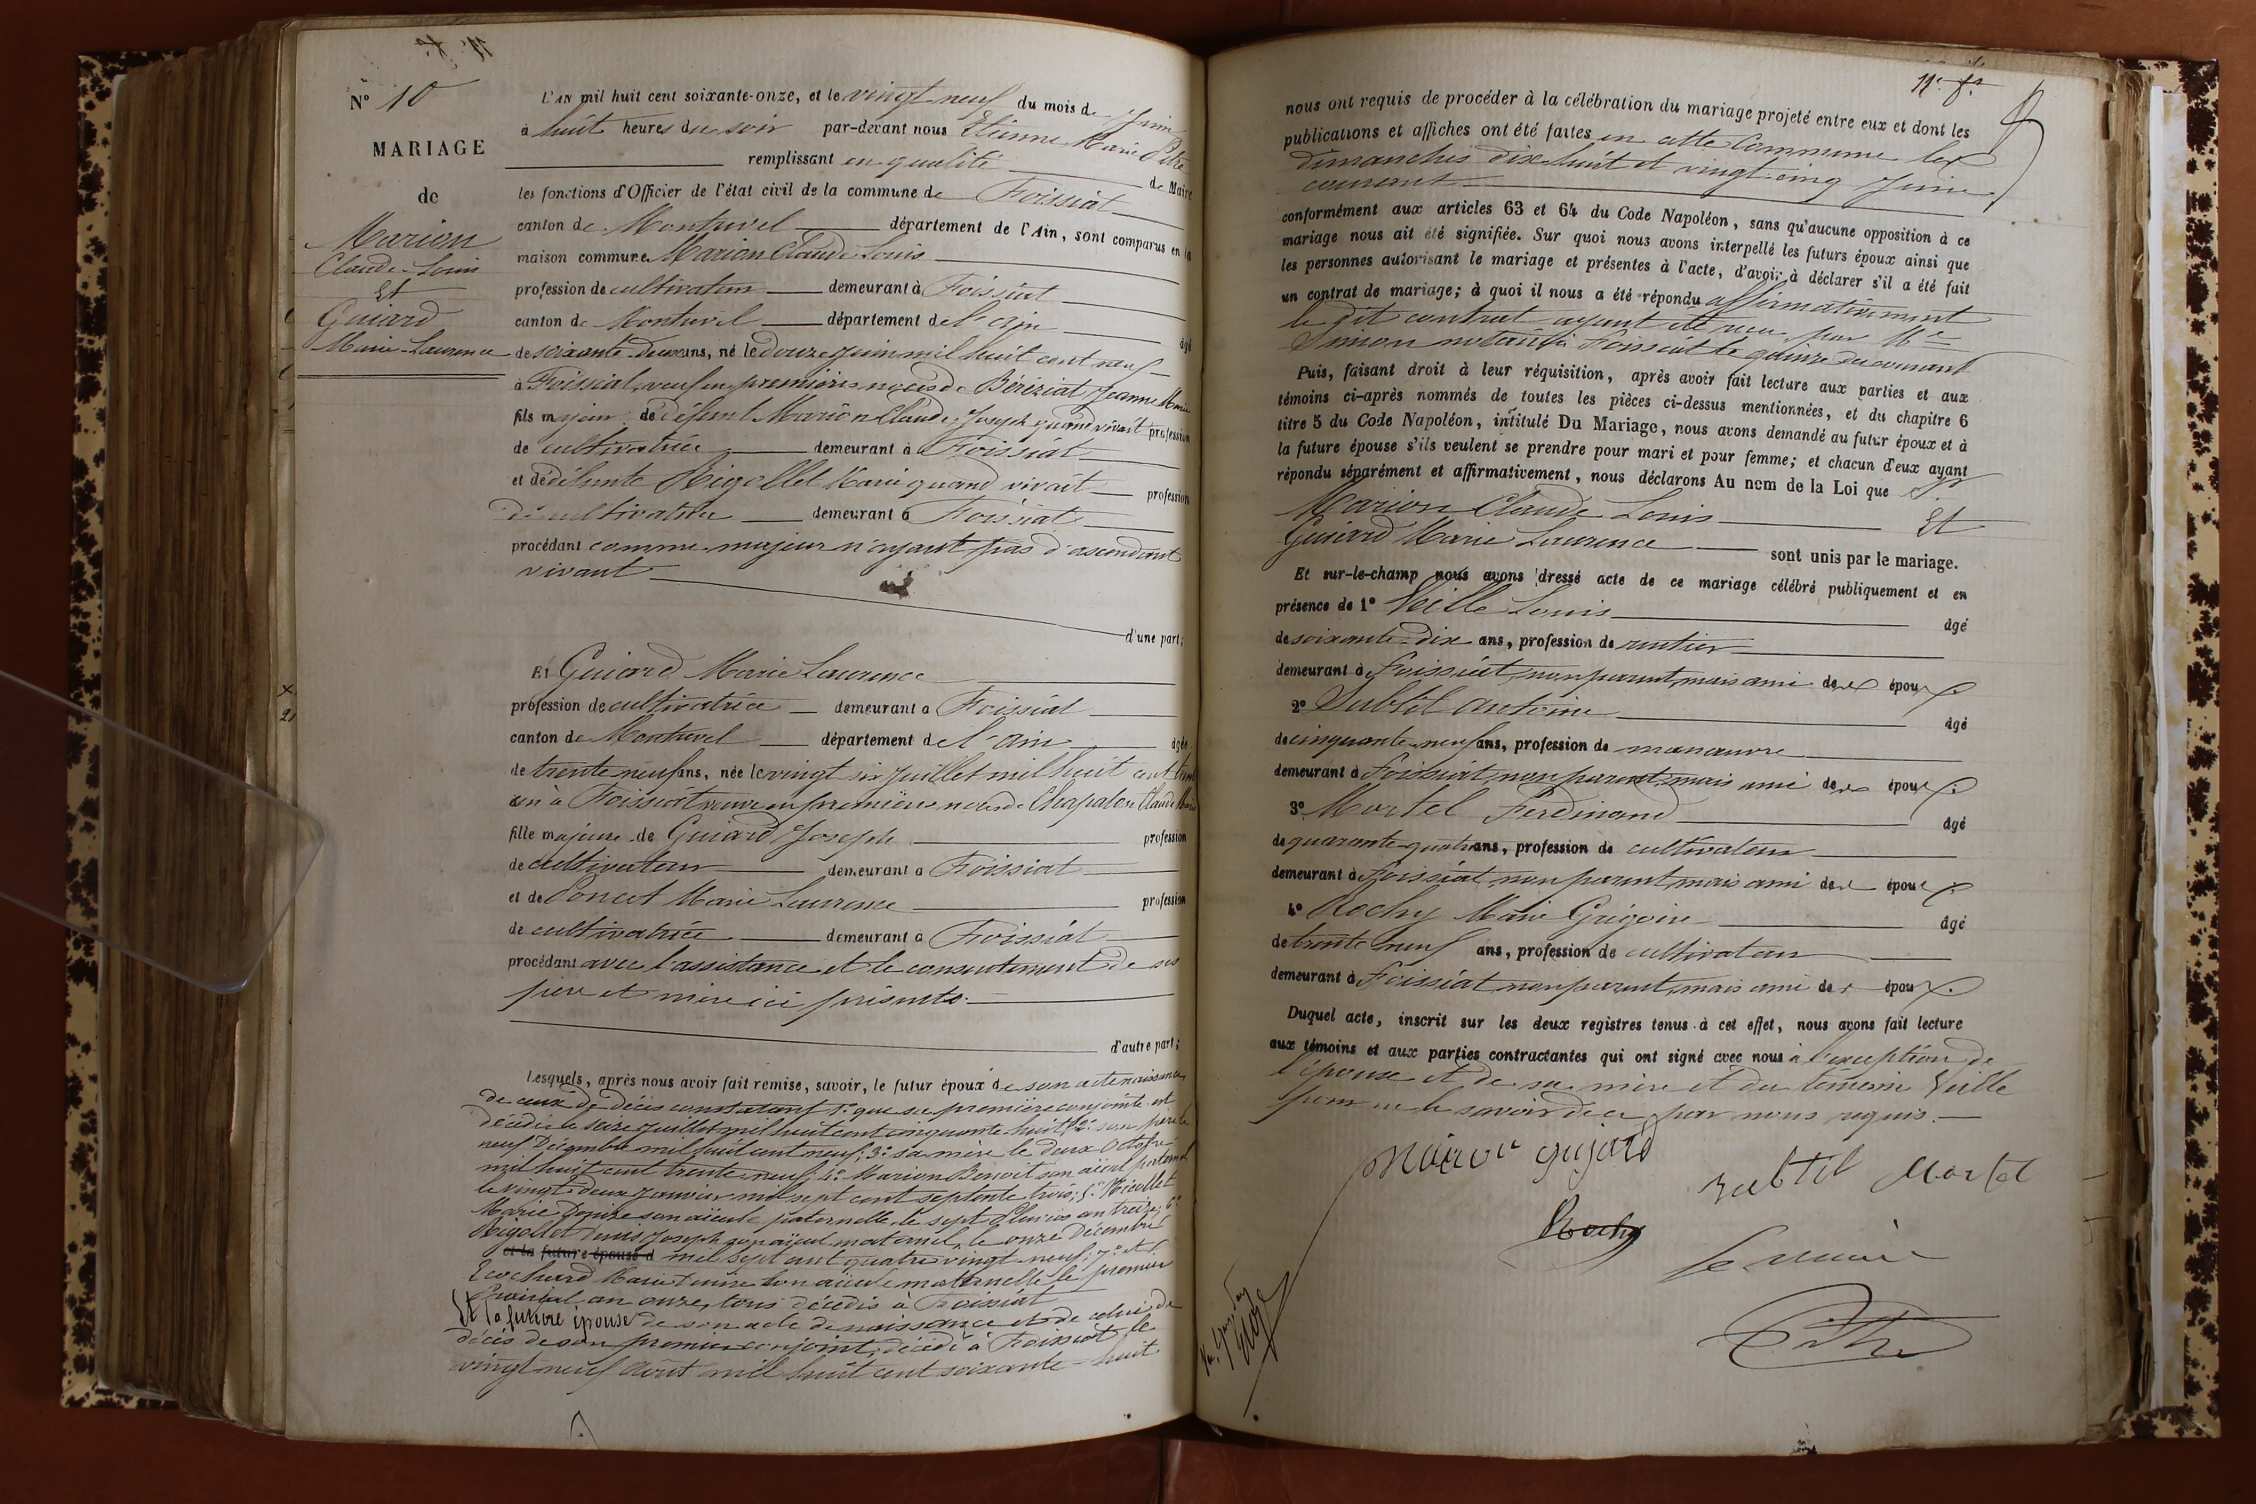 N° 10
MARIAGE
de
Marion
Claude-Louis
Et
Guiard
Marie-Laurence
L'AN mil huit cent soixante-onze, et le vingt neuf du mois de Juin
à huit heures du soir par-devant nous Etienne Marie Pitre
remplissant en qualité de Maire
les fonctions d'Officier de l'état civil de la commune de Foissiat
canton de Montrevel département de l'Ain, sont comparus en la
maison commune Marion Claude Louis
profession de cultivateur demeurant à Foissiat
canton de Montrevel département de l'ain âgé
de soixante-deux ans, né le douze Juin mil huit cent neuf
à Foissiat, veuf en premières noces de Bériziat Jeanne Marie
fils majeur de défunt Marion Claude-Joseph quand vivait profession
de cultivatrice demeurant à Foissiat
et de défunte Rigollet Marie quand vivait profession
de cultivatrice demeurant à Foissiat
procédant comme majeur n'ayant pas d'ascendant
vivant
d'une part;
Et Guiard Marie Laurence
profession de cultivatrice demeurant à Foissiat
canton de Montrevel département de l'ain âgée
de trente neuf ans, née le vingt six Juillet mil huit cent trente
un à Foissiat veuve en premières noces de Chapalon Claude Marie
fille majeure de Guiard Joseph profession
de cultivateur demeurant à Foissiat
et de Poncet Marie Laurence profession
de cultivatrice demeurant à Foissiat
procédant avec l'assistance et le consentement de ses
père et mère ici présents.
d'autre part;
Lesquels, après nous avoir fait remise, savoir, le futur époux de son acte naissance,
de ceux de décès constatant 1° que sa première conjointe est
décédée le seize Juillet mil huit cent cinquante huit; 2° son père le
neuf Décembre mil huit cent neuf; 3° sa mère le deux Octobre
mil huit cent trente neuf; 4° Marion Benoit son aïeul paternel
le vingt-deux Janvier mil sept cent septante trois; 5° Nicollet
Marie Denise son aïeule paternelle le sept an treize; 6°
Rigollet Denis Joseph son aïeul maternel, le onze Décembre
et la future épouse d mil sept cent quatre vingt neuf; 7° et
Marie son aïeule maternelle le premier
an onze, tous décédés à Foissiat
Et la future épouse de son acte de naissance et de celui de
décès de son premier conjoint, décédé à Foissiat le
vingt neuf Août mil huit cent soixante-huit
nous ont requis de procéder à la célébration du mariage projeté entre eux et dont les
publications et affiches ont été faites en cette Commune les
dimanches dix huit et vingt-cinq Juin
courant
conformément aux articles 63 et 64 du Code Napoléon, sans qu'aucune opposition à ce
mariage nous ait été signifiée. Sur quoi nous avons interpellé les futurs époux ainsi que
les personnes autorisant le mariage et présentes à l'acte, d'avoir à déclarer s'il a été fait
un contrat de mariage; à quoi il nous a été répondu affirmativement
le dit contrat ayant été reçu par Me
Simon notaire à Foissiat le quinze du courant
Puis, faisant droit à leur réquisition, après avoir fait lecture aux parties et aux
témoins ci-après nommés de toutes les pièces ci-dessus mentionnées, et du chapitre 6
titre 5 du Code Napoléon, intitulé Du Mariage, nous avons demandé au futur époux et à
la future épouse s'ils veulent se prendre pour mari et pour femme; et chacun d'eux ayant
répondu séparément et affirmativement, nous déclarons Au nom de la Loi que
Marion Claude Louis Et
Guiard Marie Laurence sont unis par le mariage.
Et sur-le-champ nous avons dressé acte de ce mariage célébré publiquement et en
présence de 1° Veille Louis âgé
de soixante-dix ans, profession de rentier
demeurant à Foissiat, non parent, mais ami des époux.
2° Subtil Antoine âgé
de cinquante-neuf ans, profession de manœuvre
demeurant à Foissiat, non parent, mais ami des époux.
3° Mortel Ferdinand âgé
de quarante-quatre ans, profession de cultivateur
demeurant à Foissiat, non parent, mais ami des époux.
4° Rochy Marie Grégoire âgé
de trente neuf ans, profession de cultivateur
demeurant à Foissiat, non parent, mais ami des époux.
Duquel acte, inscrit sur les deux registres tenus à cet effet, nous avons fait lecture
aux témoins et aux parties contractantes qui ont signé avec nous à l'exception de
l'épouse et de sa mère et du témoin Veille
pour ne le savoir de ce par nous requis.
Marion gujard
Subtil Mortel
Rochy
Le maire
Pitre